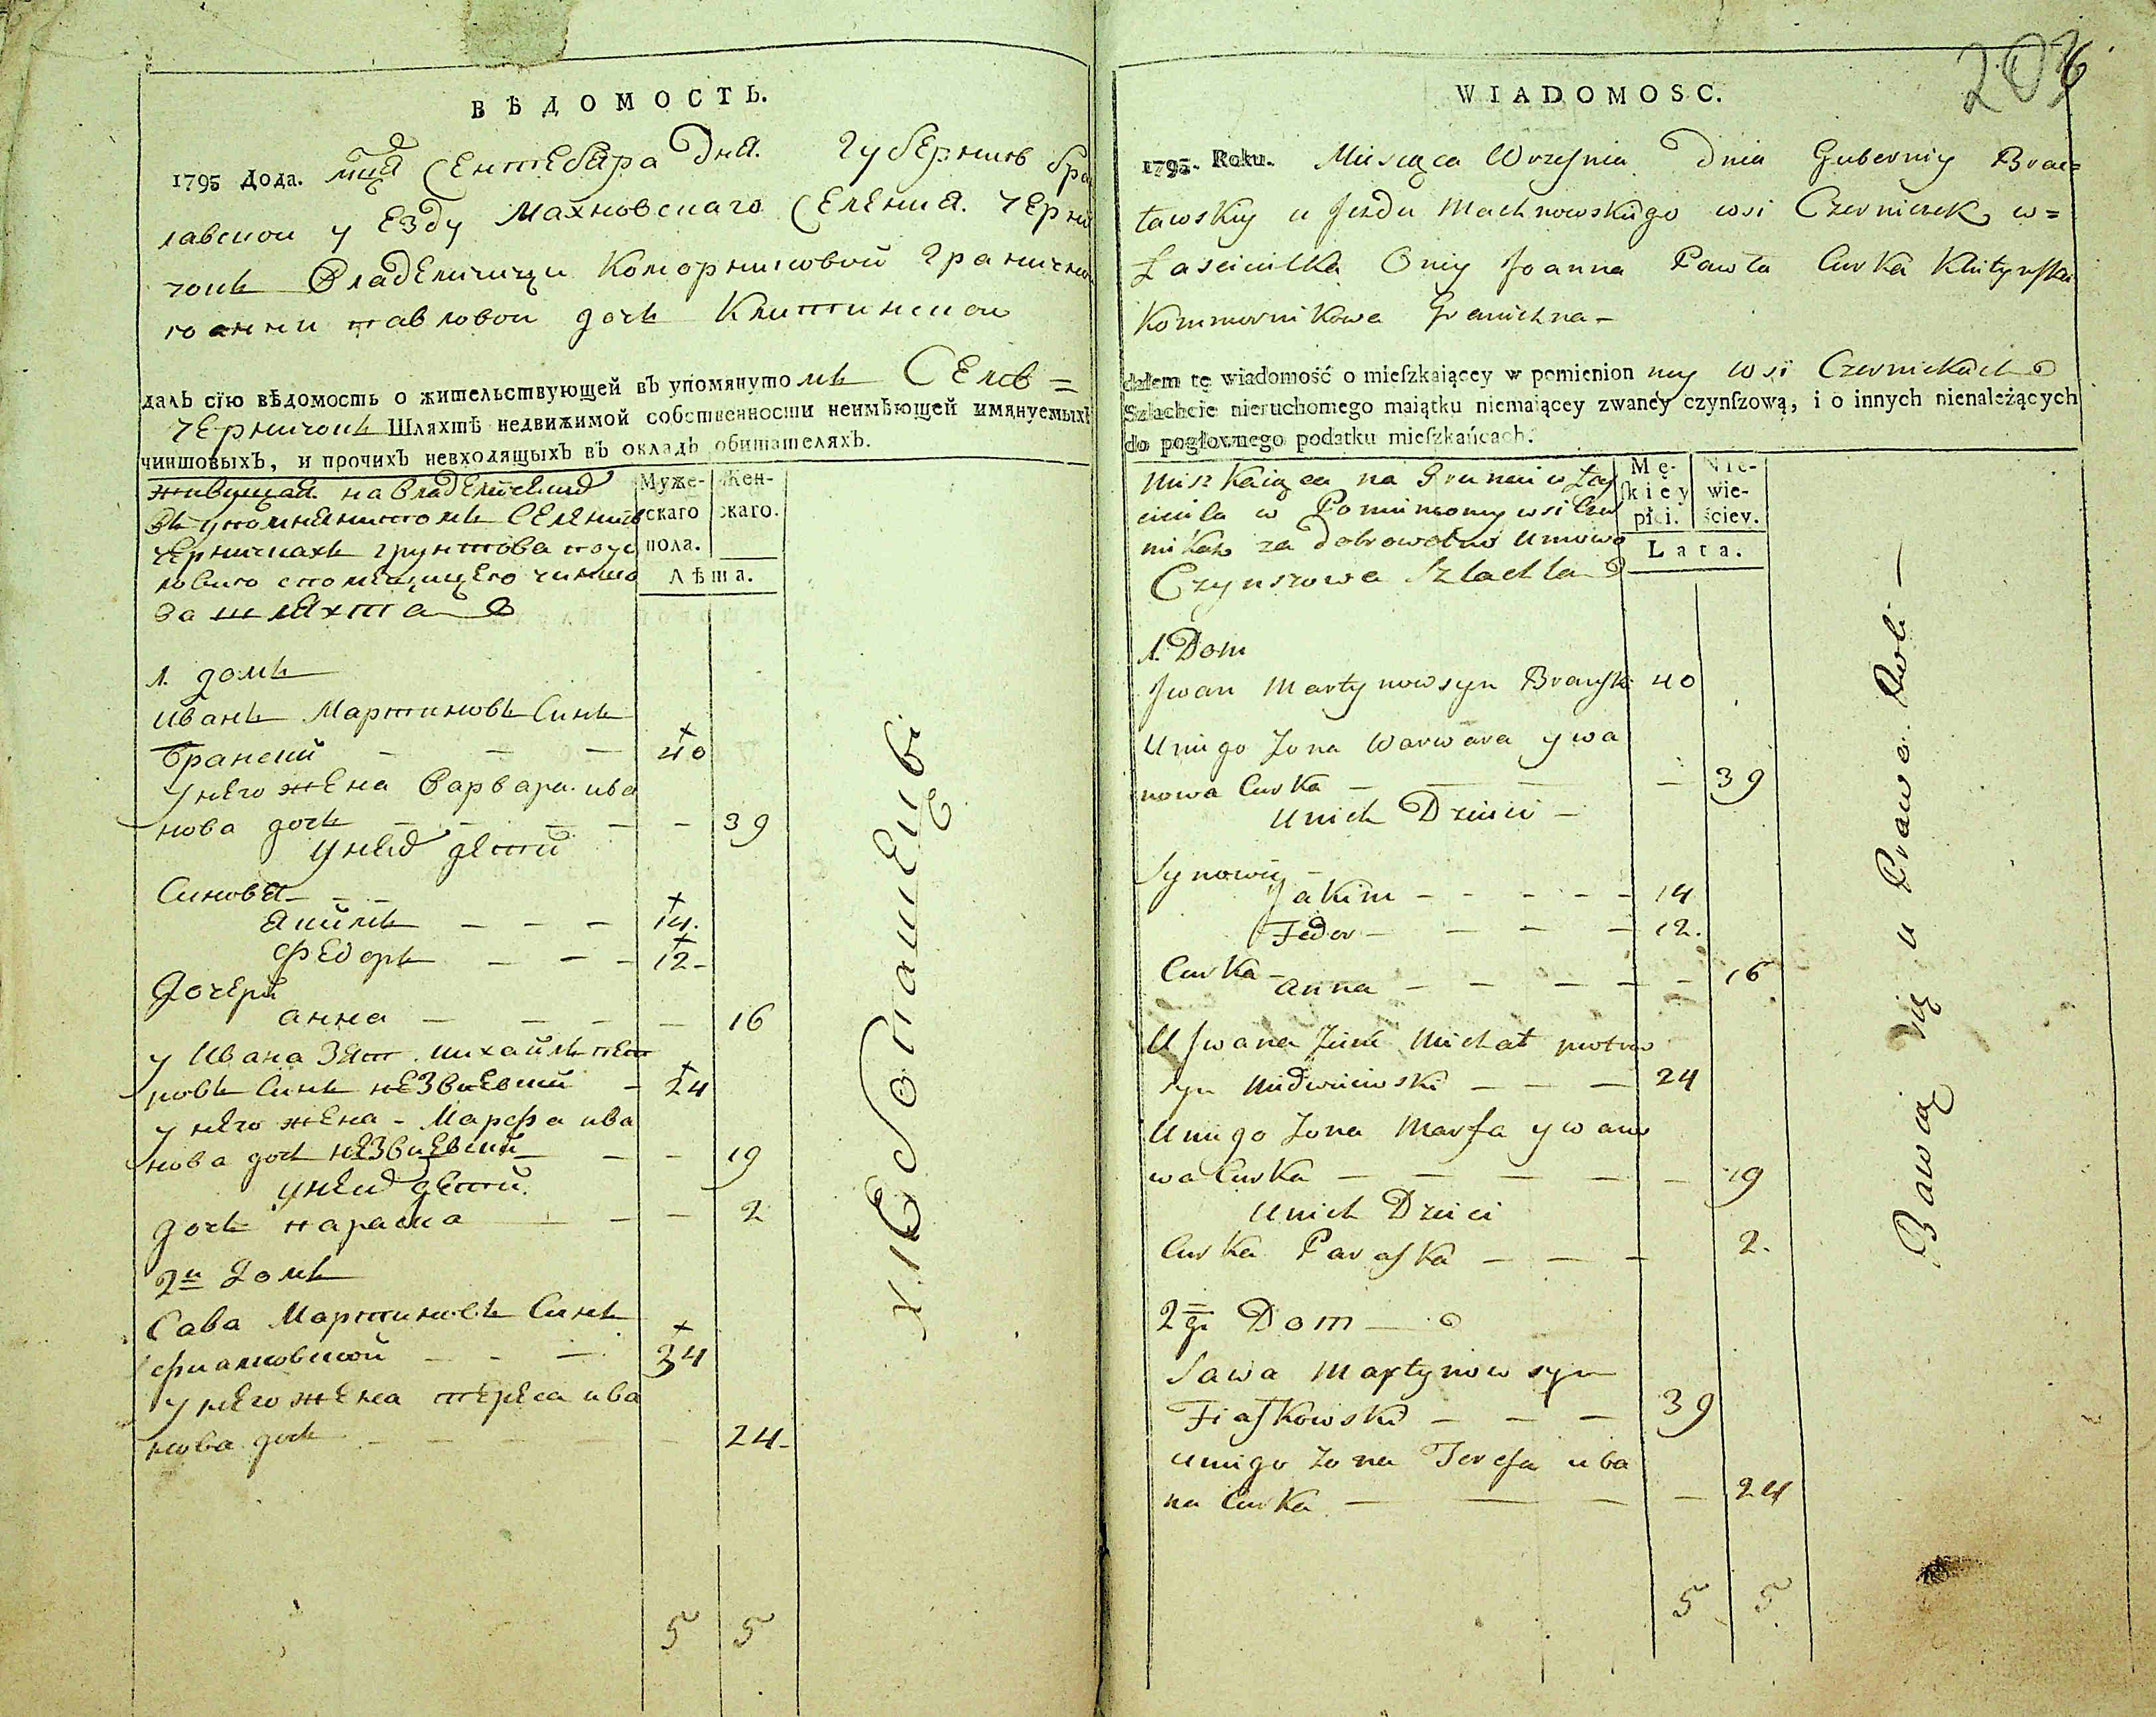 ВѢДОМОСТЬ.
1795 Года. мца Сентебара Дня. Губернiѣ Бра
лавской у Езду Махновскаго Селения. Черни
чокъ Владелницы Коморниковой Граничной
иоанни павловой дочъ
далъ сїю вѣдомость о жительствующей въ упомянутомъ Селѣ =
Черничокъ Шляхтѣ недвижимой собственности неимѣющей имянуемыхъ
чиншовыхъ, и прочихъ невходящыхъ въ окладъ обитателяхъ.
живущая на
въ упомянитомъ Селении
Черничкахъ грунтова
чиншо
за шляхта
Муже-
скаго
пола.
Жен-
скаго.
Лѣта.
1. домъ
иванъ Мартиновъ Синъ
Бранский — — — 40
у него жена Варвара ива
нова дочъ — — — — 39
у них дети
Синовя — —
Якимъ — — — 14.
Федоръ — — — 12-
Дочеръ
анна — — — — 16
у Ивана Зят михайлъ пет
ровъ Синъ — 24
у него жена - Марфа ива
нова дочъ — — 19
у них дети.
дочъ параска — — — 2
2й Домъ
Сава Мартиновъ Синъ
фиалковской — — — 34
у него жена тереса ива
нова дочъ — — — — 24-
5 5
хлебопашецъви
203
6
WIADOMOSC.
1795. Roku. Miesiąca Wrzesnia Dnia Gubernij Brac=
ławskiy u Jezdu Machnowskiego wsi Czerniczek w=
Łascicilka Oniy Joanna Pawła Curka
Kommornikowa Granichna -
dałem tę wiadomość o mieſzkaiącey w pomienionney wsi Czernickach
Szlachcie nieruchomego maiątku niemaiącey zwaney czynſzową, i o innych nienależących
do pogłownego podatku mieſzkańcach.
Miszkaiąca na Grunci włas
cicila w Pominioney wsi Czer
nikaw za dobrowolno umowo
Czynszowa Szlachta
Mę-
ſkiéy
płci.
Nie-
wie-
ściey.
Lata.
1. Dom
Jwan Martynow syn Branski 40
Uniego Zona Warwara ywa
nowa Curka — — — — 39
Unich Dzieci —
Synowiy —
Jakim — — — — 14
Fedor — — — — 12.
Curka —
anna — — — — — 16
U Jwana Zieni Michał piotrow
syn — — — 24
Uniego Zona Marfa ywano
wa Curka — — — — — 19
Unich Dzieci
Curka Paraska — — — 2.
2gi Dom —
Sawa Martynow syn
Fiałkowski — — — 39
uniego Zona Teresa uba
na Curka — — — — 24
5 5
Bawią się u Prawo Roli —